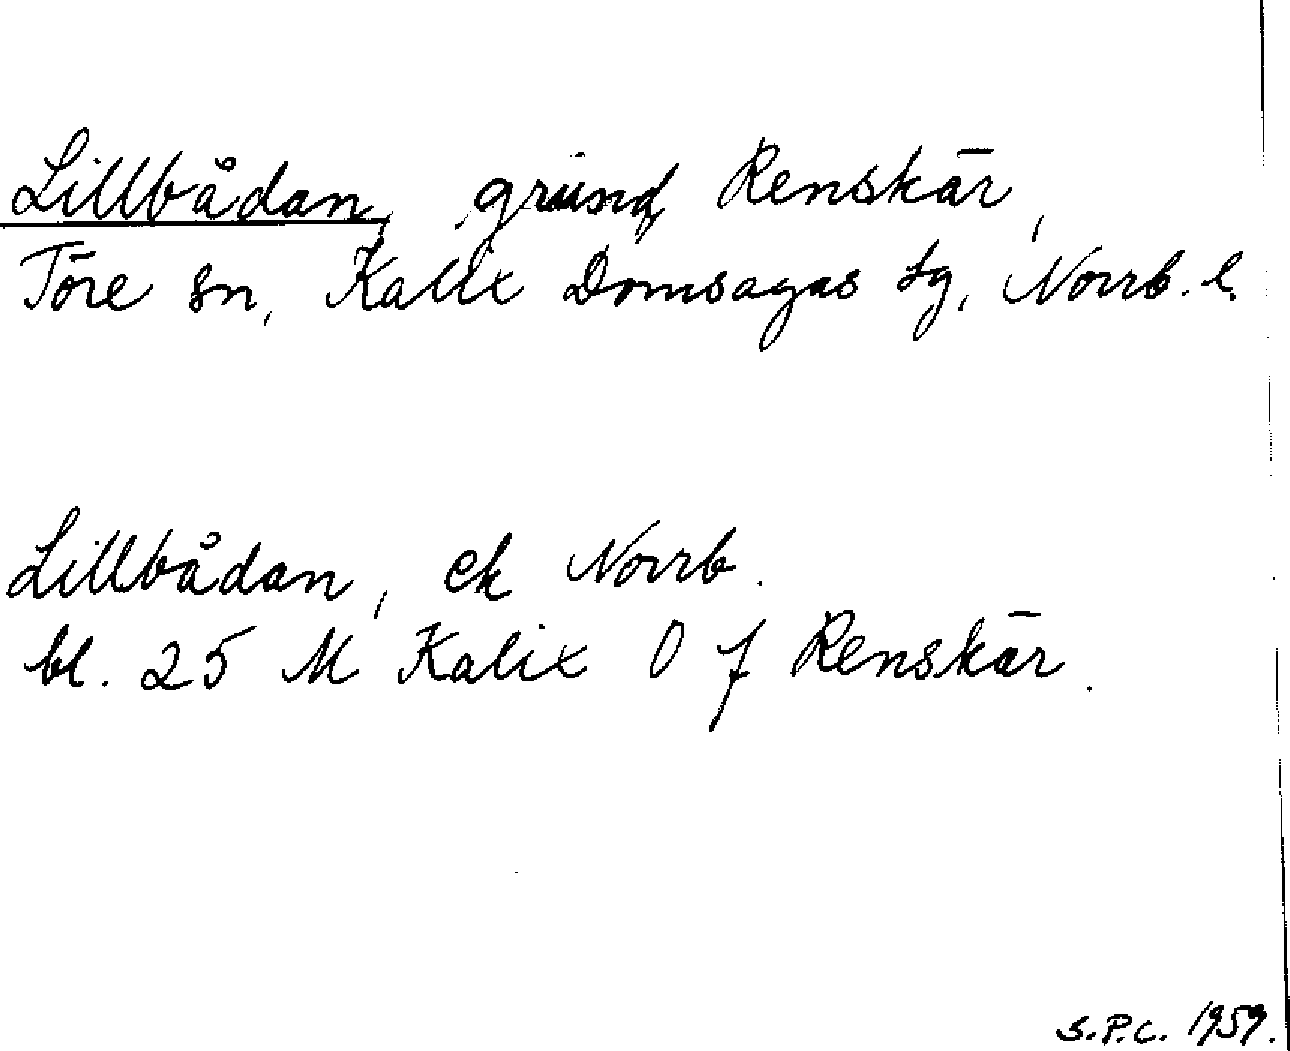 Lillbådan, grund, Renskär,
Töre sn, Kalix Domsagas tg, Norrb. l.
Lillbådan, ek Norrb.
bl. 25 M Kalix O f Renskär.
S.P.C. 1959.